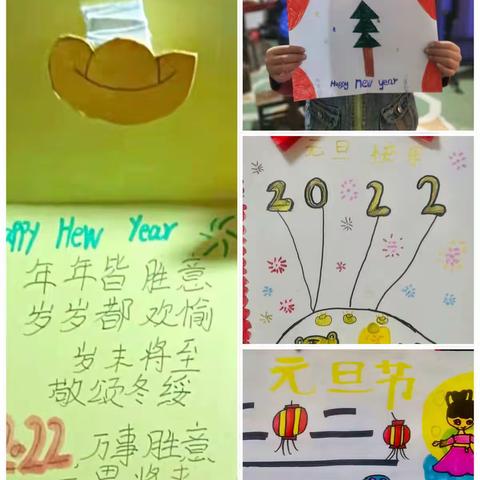 appy Hew Year
年年皆胜意
岁岁都欢愉
岁末将至
敬颂冬绥
2022
万事胜意
Happy Mew year
元旦快乐
2022
元旦节